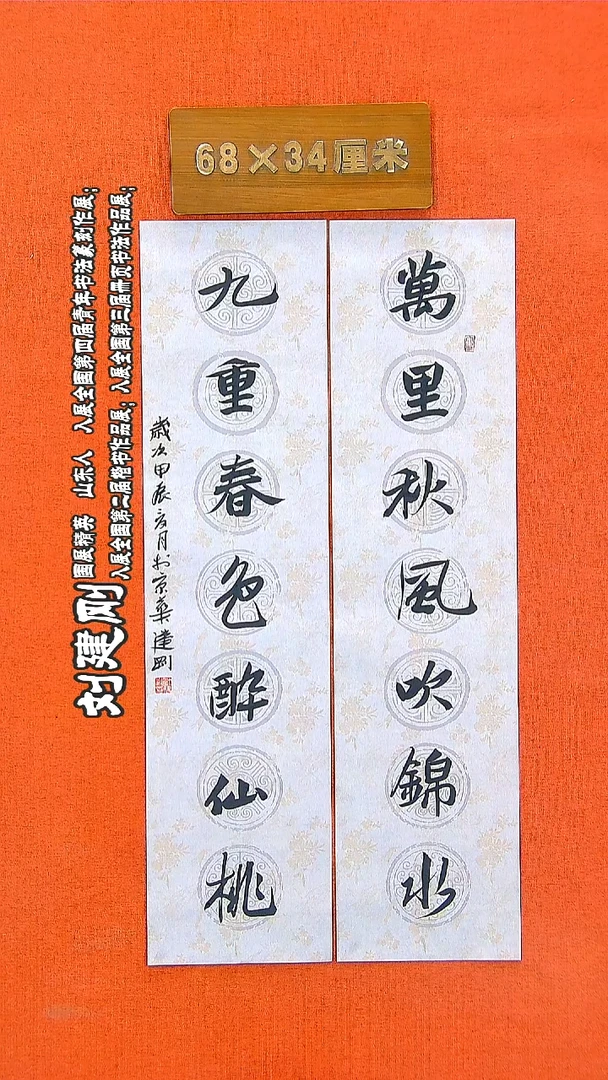 68×34厘米
萬里秋風吹錦水
九重春色醉仙桃
歲次甲辰六月於京華 建剛
刘建刚
国展精英 山东人 入展全国第四届青年书法篆刻作展;
入展全国第二届楷书作品展; 入展全国第三届册页书法作品展;